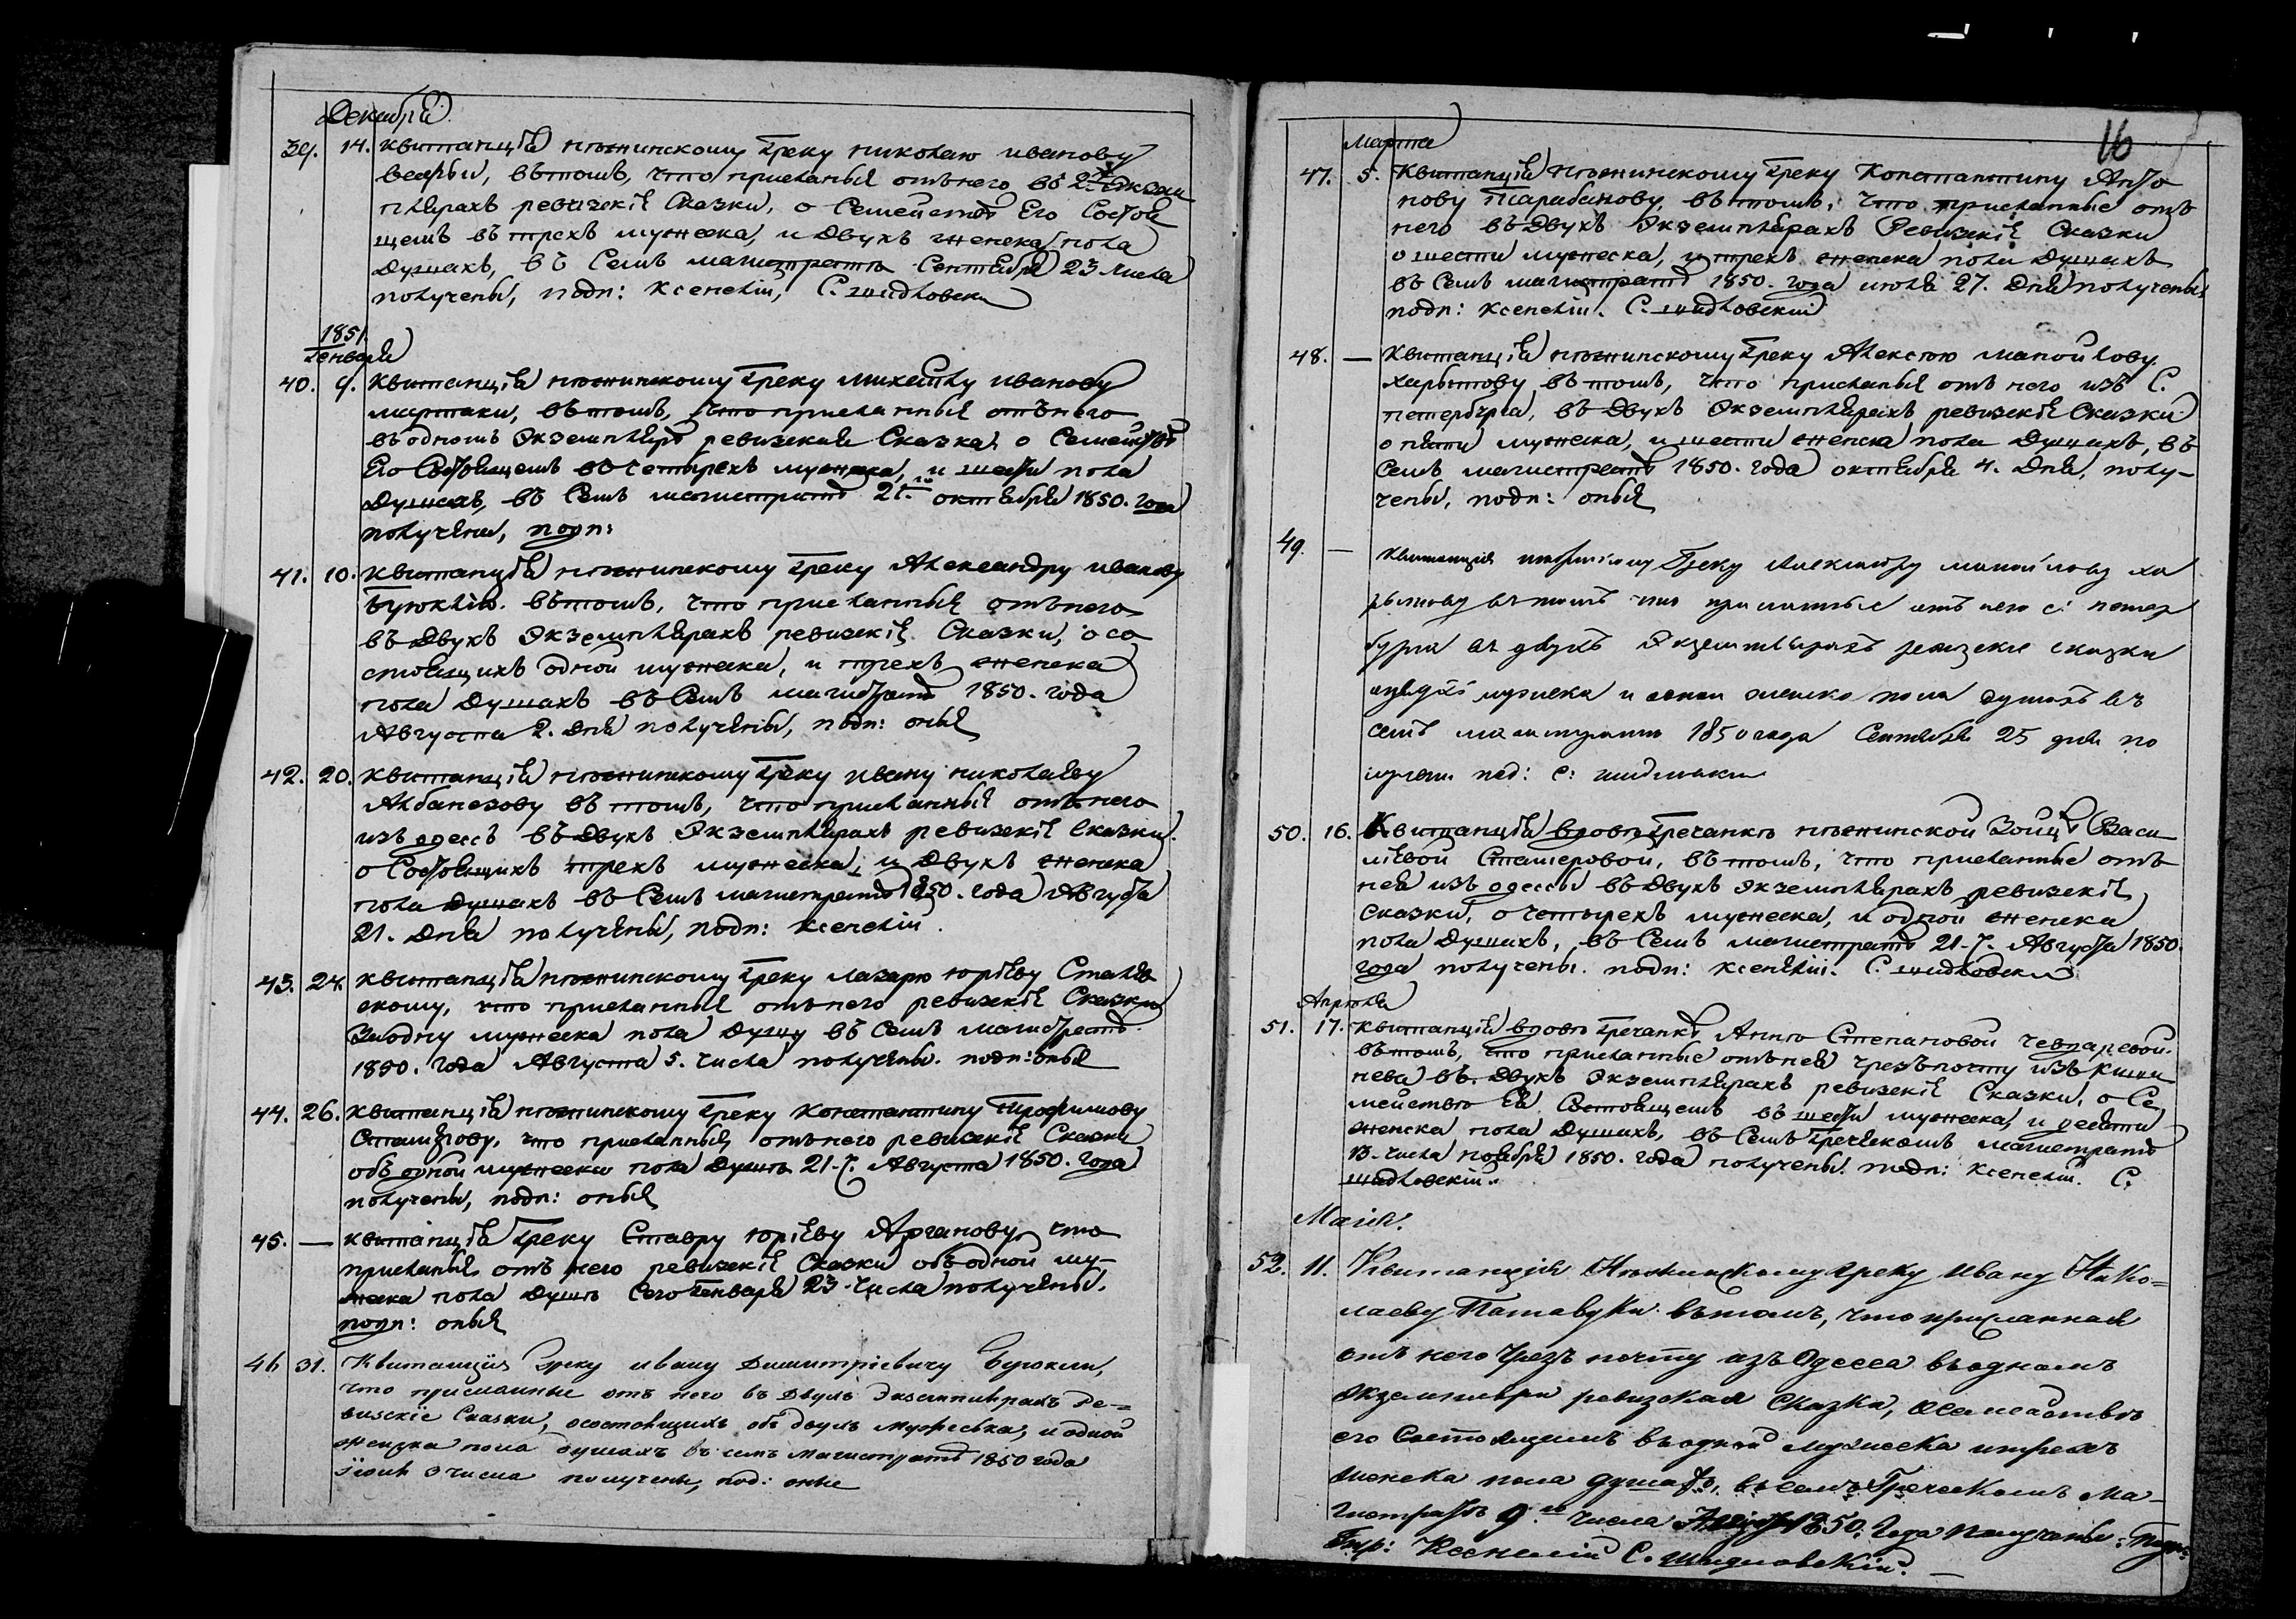 Декабря
39. 14. Квитанція нѣжинскому греку николаю иванову
въ томъ, что присланыя отъ него въ 2х Экзем
плярахъ ревизскія Сказки, о Семействѣ Его Состоя
щемъ въ трехъ мужеска, и Двухъ женска пола
Душахъ, въ Семъ магистратѣ Сентября 23 числа
получены, подп: Ксенелій, С. шидловски
1851.
генваря
40. 9. Квитанція нѣжинскому греку михайлу иванову
мартаки, въ томъ, что присланныя отъ него
въ одномъ Экземплярѣ ревизская Сказка, о Семействѣ
Его Состоящемъ въ четырехъ мужеска, и шести пола
Душахъ, въ Семъ магистратѣ 21.го октября 1850. года
получены, подп:
41. 10. Квитанція нѣжинскому греку Александру иванову
Буюклію. въ томъ, что присланныя отъ него
въ Двухъ Экземплярахъ ревизскія Сказки, о со
стоящихъ одной мужеска, и трехъ женска
пола Душахъ въ Семъ магистратѣ 1850. года
Августа 2. Дня получены, подп: оныя
42. 20. Квитанція нѣжинскому греку ивану николаеву
Албанезову въ томъ, что присланныя отъ него
изъ одессъ въ Двухъ Экземплярахъ ревизскія Сказки.
о Состоящихъ трехъ мужеска, и Двухъ женска
пола Душахъ въ Семъ магистратѣ 1850. года Августа
21. Дня получены, подп: Ксенелій.
43. 24. Квитанція нѣжинскому греку лазарю юріеву
скому, что присланныя отъ него ревизскія Сказки
За одну мужеска пола Душу въ Семъ магистратѣ
1850. года Августа 5. числа получены. подп: оныя
44. 26. Квитанція нѣжинскому греку Константину Трофимову
что присланныя отъ него ревизскія Сказки
объ одной мужеска пола Душѣ 21-г. Августа 1850. года
получены, подп: оныя
45. — Квитанція греку Ставру юріеву Арганову, что
присланыя отъ него ревизскія Сказки объ одной му-
жеска пола Душѣ Сего генваря 23 числа получены.
подп: оныя
46 31. Квитанція Греку ивану Димитріевичу Буюкли,
что присланные отъ него въ двухъ Экземплярахъ Ре-
визскіе Сказки, о состоящихъ объ двухъ мужеска, и одной
женска пола душахъ въ семъ Магистратѣ 1850 года
числа получены, под: оные
16
марта
47. 5. Квитанція нѣжинскому греку Константину Анто
нову Тарабанову, въ томъ, что присланные отъ
него въ Двухъ Экземплярахъ Ревизскія Сказки
о шести мужеска, и трехъ женска пола Душахъ
въ Семъ магистратѣ 1850. года июля 27. Дня получены
подп: Ксенелій. С. шидловскій
48. — Квитанція нѣжинскому греку Алексѣю манойлову
харьтову въ томъ, что присланыя отъ него изъ С.
петербурга, въ Двухъ Экземплярахъ ревизскія Сказки
о пяти мужеска, и шести женска пола Душахъ, въ
Семъ магистратѣ 1850. года октября 4. Дня, полу-
чены, подп: оныя
49. — Квитанція нѣжинскому Греку Александру манойлову ха
въ томъ что присланные отъ него с: петер
бурга въ двухъ Экземплярахъ ревизскіе сказки
мужеска и женска пола душахъ въ
семъ магистратѣ 1850 года Сентября 25 дня по
лучены под: с: шидловски
50. 16. Квитанція вдовѣ гречанкѣ нѣжинской Зоицѣ Васи
ліевой Стамеровой, въ томъ, что присланные отъ
нея изъ одессы въ Двухъ Экземплярахъ ревизскія
Сказки, о четырехъ мужеска, и одной женска
пола Душахъ, въ Семъ магистратѣ 21-г. Августа 1850.
года получены. подп: Ксенелій. С. шидловски
Апрѣля
51. 17. Квитанція вдовѣ гречанкѣ Аннѣ Степановой
въ томъ, что присланные отъ нея чрезъ почту изъ Киши
нева въ Двухъ Экземплярахъ ревизскія Сказки, о Се
мействѣ Ея Состоящемъ въ шести мужеска, и десяти
женска пола Душахъ, въ Семъ греческомъ магистратѣ
13. числа ноября 1850. года получены. подп: Ксенелій. С.
шидловскій.
Маія.
52. 11. Квитанція Нѣжинскому греку Ивану Нико=
лаеву въ томъ, что присланная
отъ него чрезъ почту изъ Одесса въ одномъ
экземпляри ревизская Сказка, о семействѣ
его Состоящемъ въ одной мужеска и трехъ
женска пола душахъ, въ семъ Греческомъ Ма-
гистратѣ 9.го числа 1850. Года получены: Подп:
Ксенелій С. Шидловскій. —